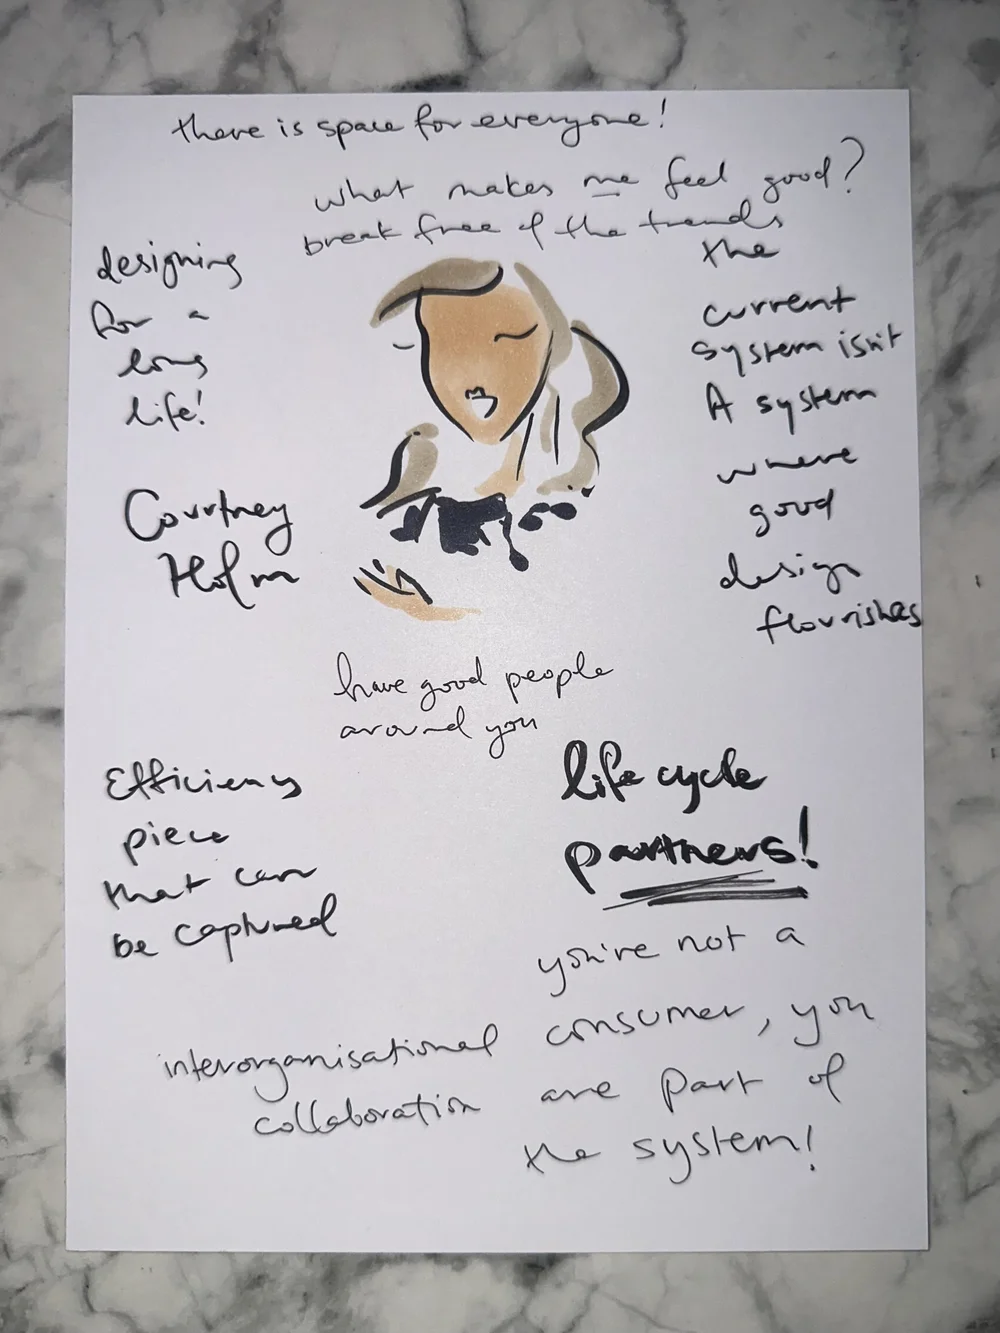 there is space for everyone!
what makes me feel good?
break free of the trends
designing
for a
long
life!
the
current
system isn't
A system
where
good
design
flourishes
Courtney
Holm
have good people
around you
Efficiency
piece
that can
be captured
life cycle
partners!
you're not a
consumer, you
are part of
the system!
interorganisational
collaboration